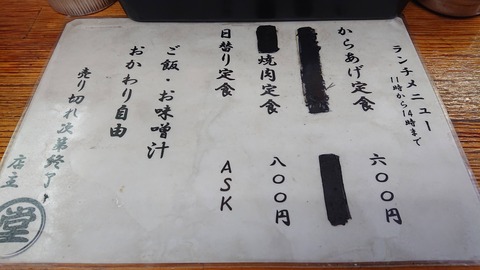 ランチメニュー
11時から14時まで
からあげ定食 六〇〇円
焼肉定食 八〇〇円
日替り定食 ASK
ご飯・お味噌汁
おかわり自由
売り切れ次第終了
店主
堂